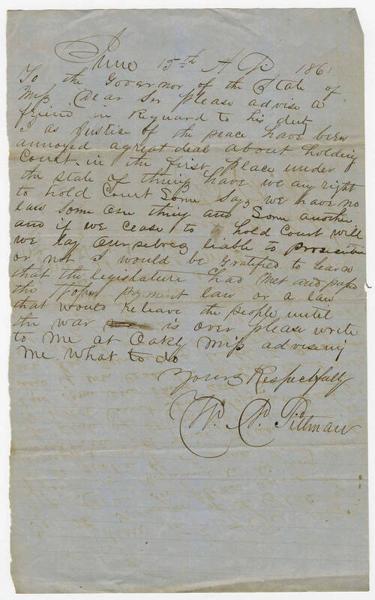 June 15th A D 1861
To the Governor of the State of
Miss Dear Sir please advise a
friend in Reguard to his duty
I as Justice of the peace have been
annoyed a great deal about holding
Court in the first place under
the state of things have we any right
to hold Court Some says we have no
law Some one thing and Some another
and if we cease to hold Court will
we lay ourselves liable to prosecution
or not I would be gratified to learn
that the legislature had met and pass
this law or a law
that would releave the people until
the war is over please write
to me at Oakley Miss advising
me what to do
Yours Respectfully
W. P. Pittman